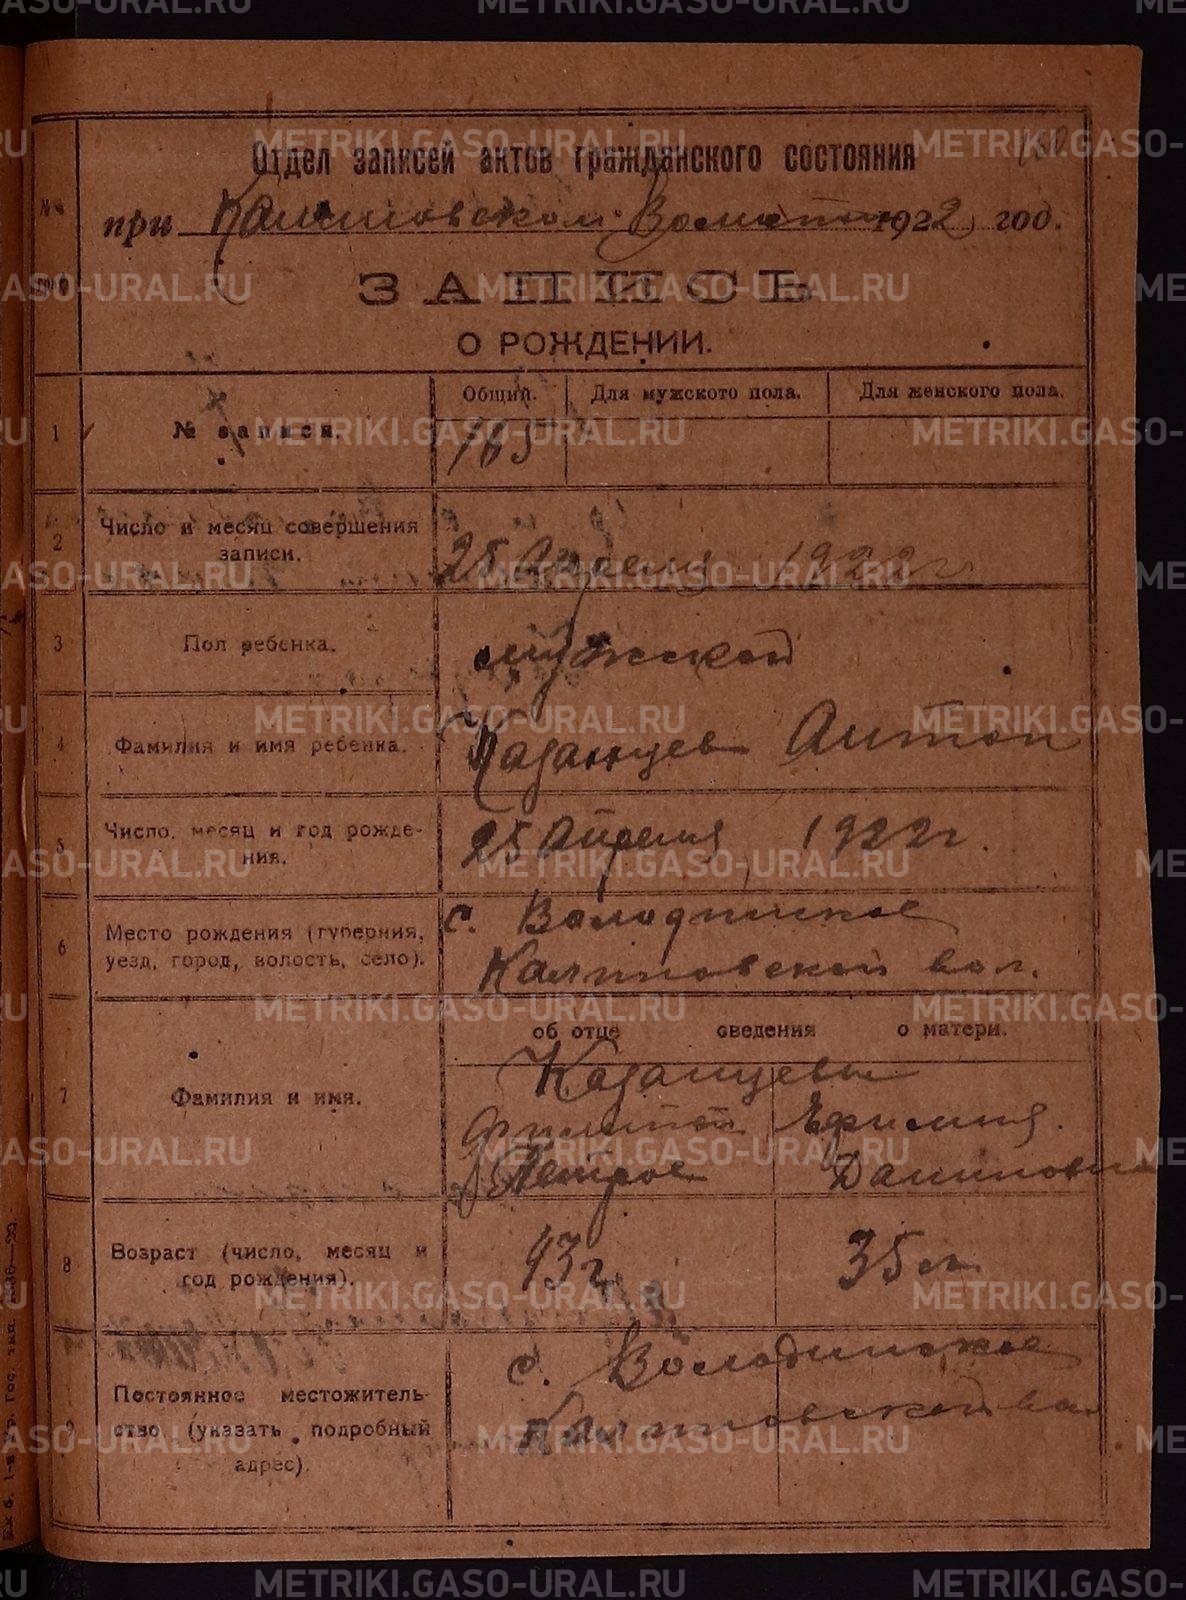 Отдел записей актов гражданского состояния
при Калиновском Волисп 1922 год.
ЗАПИСЬ
О РОЖДЕНИИ.
Общий. Для мужского пола. Для женского пола.
1 № записи. 165
2 Число и месяц совершения записи. 25 Апреля 1922 г
3 Пол ребенка. мужской
4 Фамилия и имя ребенка. Казанцев Антон
5 Число, месяц и год рожде-
ния. 25 Апреля 1922 г.
6 Место рождения (губерния, с. Володинское
уезд, город, волость, село). Калиновской вол.
об отце сведения о матери.
7 Фамилия и имя. Казанцевы
Филипп Ефимия
Петров Данилов
8 Возраст (число, месяц и
год рождения). 43 г 35 л
9 Постоянное местожитель- с. Володинское
ство (указать подробный Калиновской вол
адрес).
METRIKI.GASO-URAL.RU